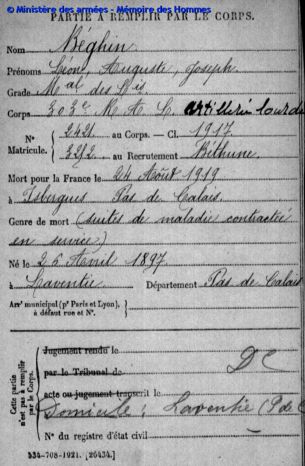 © Ministère des armées - Mémoire des Hommes
PARTIE A REMPLIR PAR LE CORPS.
Nom Béghin
Prénoms Léon, Auguste, Joseph
Grade Mal des Lis
Corps 303e R A L artillerie lourde
Nos 2421 au Corps. — Cl. 1917
Matricule. 322 au Recrutement Béthune
Mort pour la France le 24 Août 1919
à Isbergues Pas de Calais
Genre de mort (suites de maladie contractée
en service)
Né le 25 Avril 1897
à Laventie Département Pas de Calais
Arrt municipal (pr Paris et Lyon),
à défaut rue et No.
Cette partie
n'est pas à remplir
par le Corps.
Jugement rendu le
par le Tribunal de
acte ou jugement transcrit le
Domicile: Laventie (P de C
No du registre d'état civil
534-708-1921. [26434.]